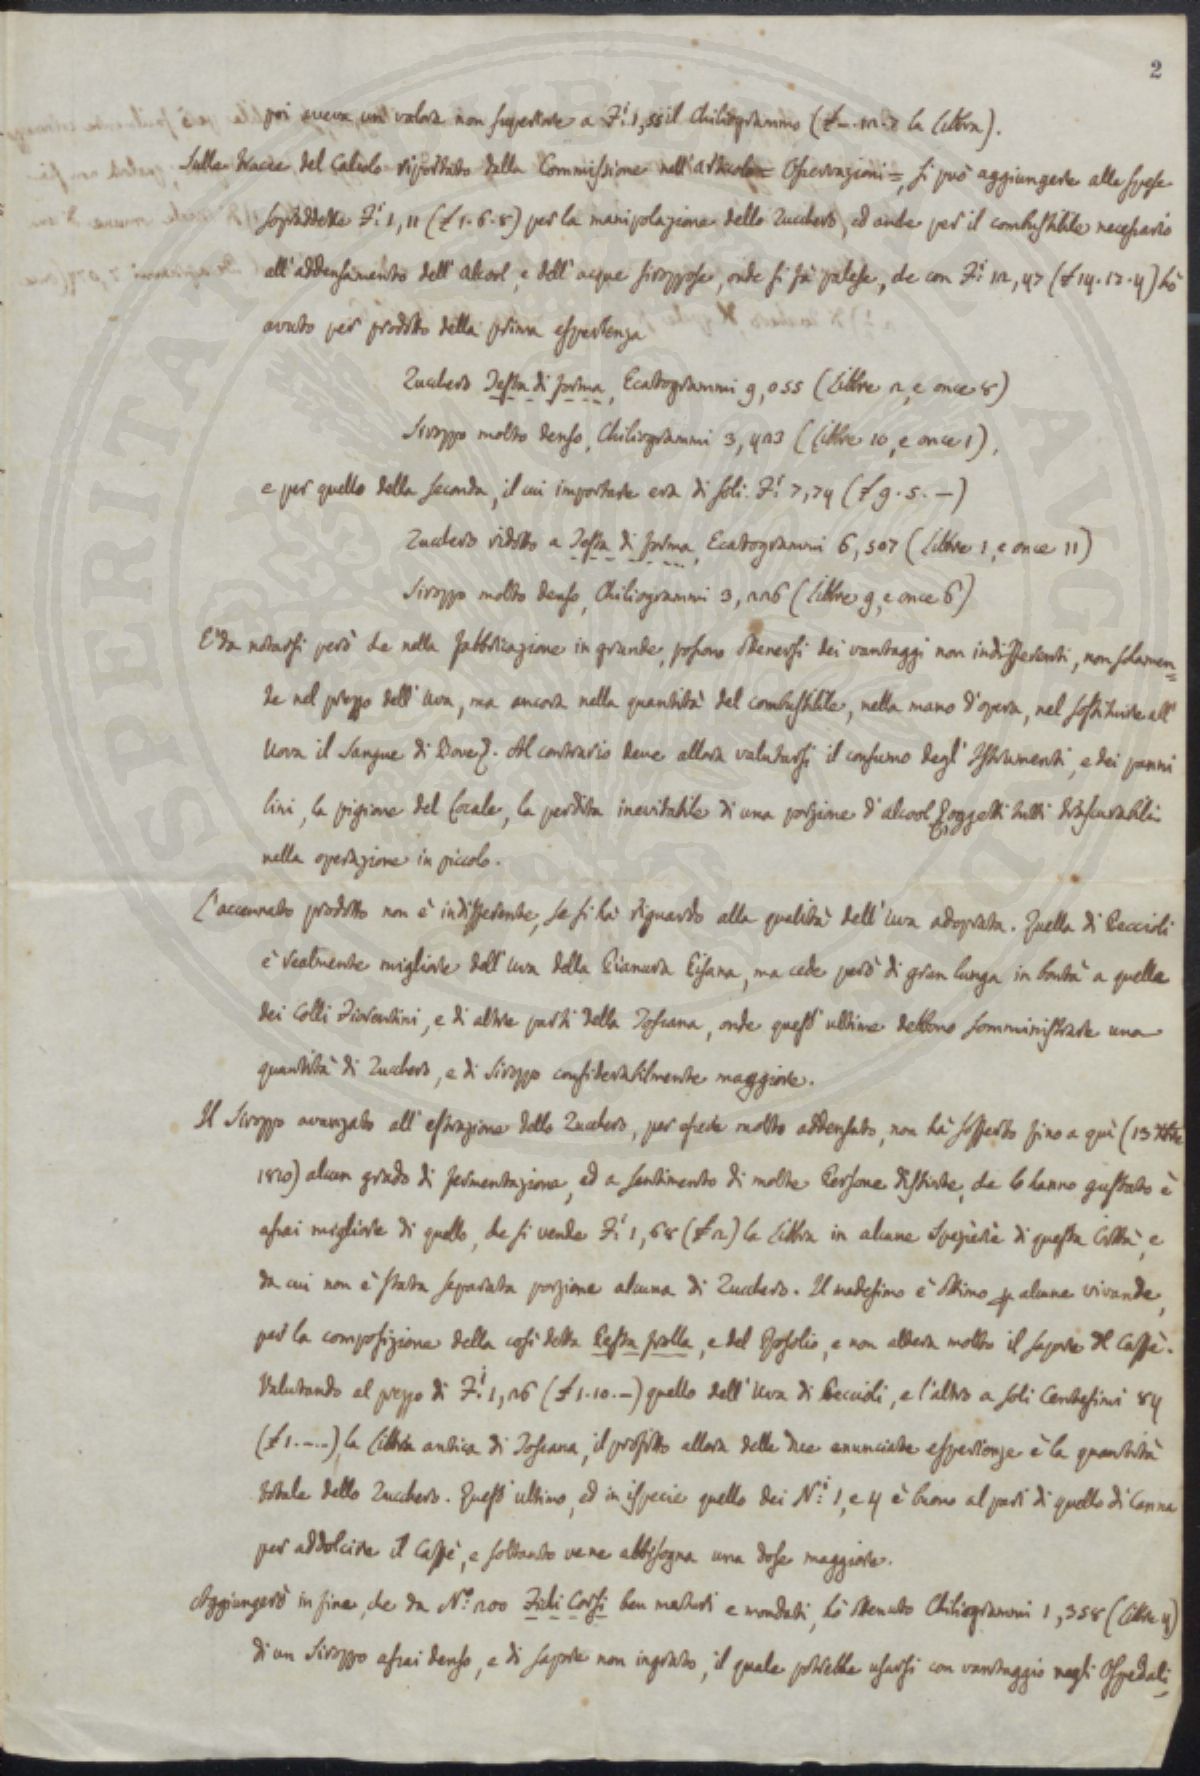 2
poi aveva un valore non superiore a F.i 1,55 il Chiliogrammo (£ -. 12. 7 la Libbra).
Sulle tracce del Calcolo riportato dalla Commissione nell'articolo = Osservazioni =, si può aggiungere alle spese
sopraddette F.i 1,11 (£ 1. 6. 8) per la manipolazione dello Zucchero, ed anche per il combustibile necessario
all'addensamento dell'alcool, e dell'acque siroppose, onde si fà palese, che con F.i 12,47 (£ 14. 17. 4) hò
avuto per prodotto della prima esperienza
Zucchero Testa di forma, Ecatogrammi 9,055 (Libbre 2, e once 8)
Siroppo molto denso, Chiliogrammi 3,423 (Libbre 10, e once 1),
e per quello della seconda, il cui importare era di soli F.i 7,74 (£ 9. 5. -)
Zucchero ridotto a Testa di forma, Ecatogrammi 6,507 (Libbre 1, e once 11)
Siroppo molto denso, Chiliogrammi 3,226 (Libbre 9, e once 6)
E' da notarsi però che nella fabbricazione in grande, possono ottenersi dei vantaggi non indifferenti, non solamen=
te nel prezzo dell'Uva, ma ancora nella quantità del combustibile, nella mano d'opera, nel sostituire all'
Uova il Sangue di Bove. Al contrario deve allora valutarsi il consumo degl'Istrumenti, e dei panni
lini, la pigione del Locale, la perdita inevitabile di una porzione d'alcool, oggetti tutti trascurabili
nella operazione in piccolo.
L'accennato prodotto non è indifferente, se si hà riguardo alla qualità dell'Uva adoprata. Quella di Peccioli
è realmente migliore dell'Uva della Pianura Pisana, ma cede però di gran lunga in bontà a quelle
dei Colli Fiorentini, e di altre parti della Toscana, onde quest'ultime debbono somministrare una
quantità di Zucchero, e di Siroppo considerabilmente maggiore.
Il Siroppo avanzato all'estrazione dello Zucchero, per essere molto addensato, non hà sofferto fino a quì (13 Xbre
1810) alcun grado di fermentazione, ed a sentimento di molte Persone distinte, che lo hanno gustato è
assai migliore di quello, che si vende F.i 1,68 (£ 2) la Libbra in alcune Spezierie di questa Città, e
da cui non è stata separata porzione alcuna di Zucchero. Il medesimo è ottimo p alcune vivande,
per la composizione della così detta Pasta frolla, e del Rosolio, e non altera molto il sapore del Caffè.
Valutando al prezzo di F.i 1,26 (£ 1. 10. -) quello dell'Uva di Peccioli, e l'altro a soli Centesimi 84
(£ 1. -. -) la Libbra antica di Toscana, il profitto allora delle due enunciate esperienze è la quantità
totale dello Zucchero. Quest'ultimo, ed in ispecie quello dei N.i 1, e 4 è buono al pari di quello di Canna
per addolcire il Caffè, e soltanto ve ne abbisogna una dose maggiore.
Aggiungerò in fine, che da N.o 200 Fichi Corsi ben maturi e mondati, hò ottenuto Chiliogrammi 1,358 (Libbre 4)
di un Siroppo assai denso, e di sapore non ingrato, il quale potrebbe usarsi con vantaggio negli Ospedali,